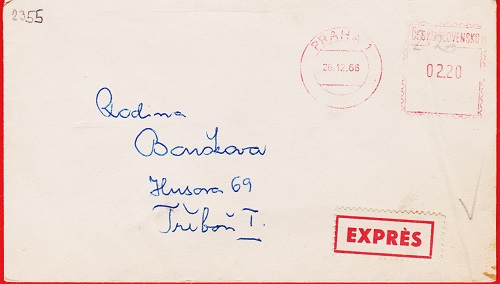 2355
PRAHA 1
26.12.66
ČESKOSLOVENSKO
02.20
Rodina
Husova 69
Třeboň I.
EXPRÈS